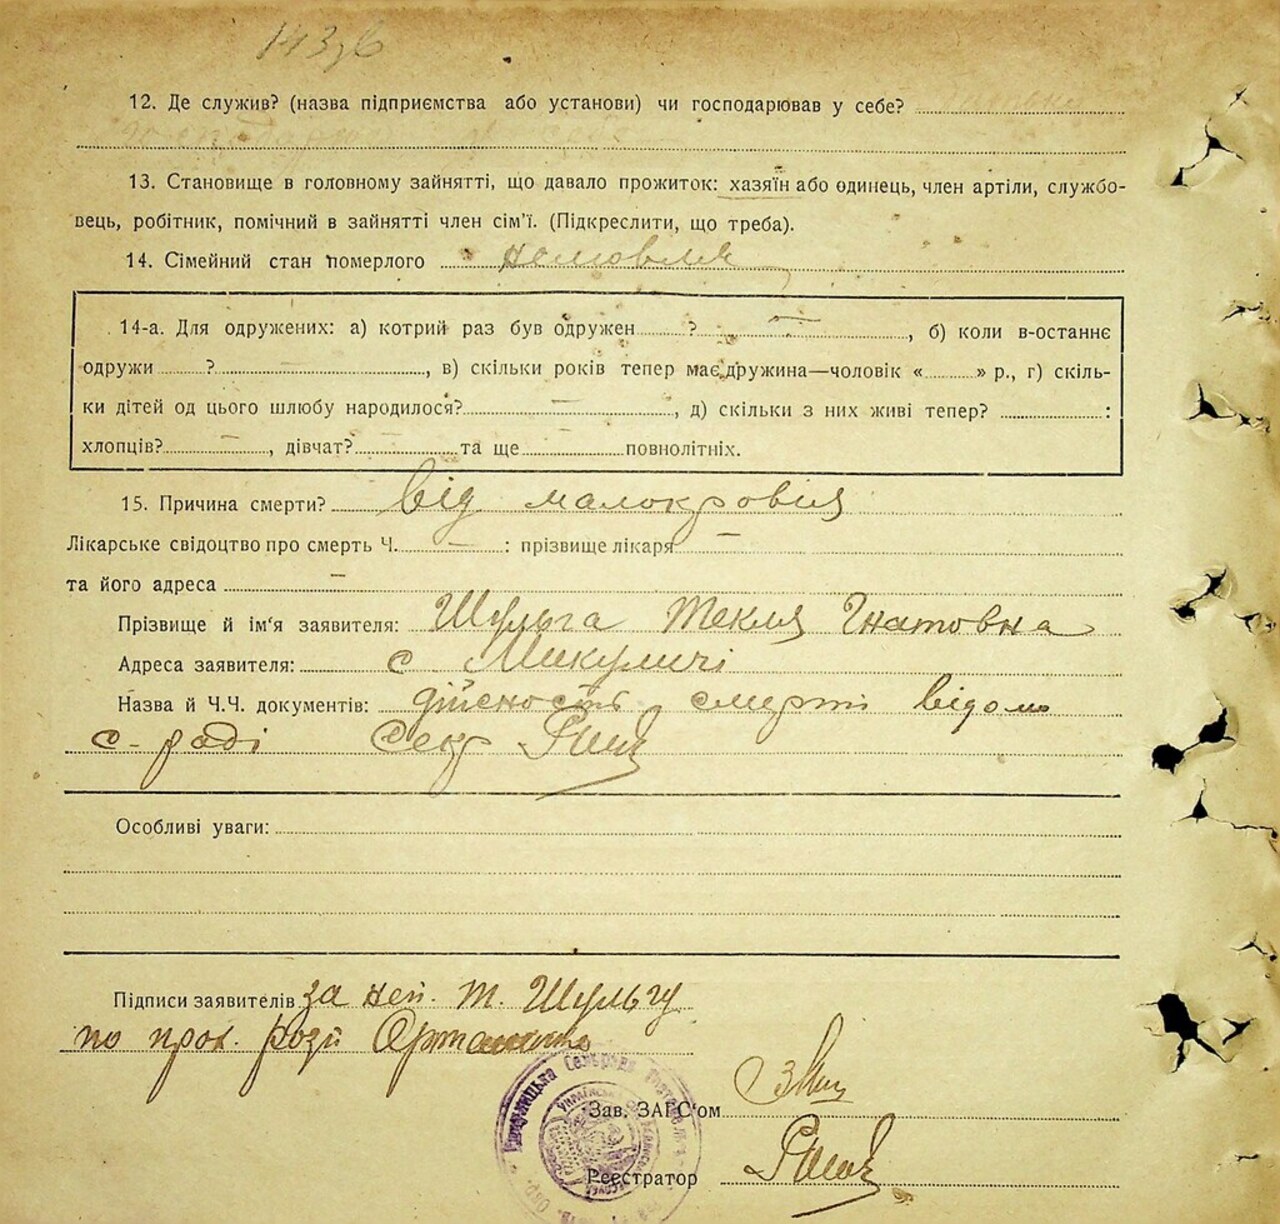 12. Де служив? (назва підприємства або установи) чи господарював у себе?
13. Становище в головному зайнятті, що давало прожиток: хазяїн або одинець, член артіли, службо-
вець, робітник, помічний в зайнятті член сім'ї. (Підкреслити, що треба).
14. Сімейний стан померлого немовля
14-а. Для одружених: а) котрий раз був одружен ? —, б) коли в-останнє
одружи ? —, в) скільки років тепер має дружина—чоловік «......» р., г) скіль-
ки дітей од цього шлюбу народилося? —, д) скільки з них живі тепер? :
хлопців? —, дівчат? — та ще — повнолітніх.
15. Причина смерти? від малокровія
Лікарське свідоцтво про смерть Ч. — : прізвище лікаря —
та його адреса —
Прізвище й ім'я заявителя: Шульга Текля Гнатовна
Адреса заявителя: с Микуличі
Назва й Ч.Ч. документів: дійсность смерті відомо
с-раді Секр
Особливі уваги:
Підписи заявителів за неп. Т. Шульгу
по прох. розп
Зав. ЗАГС'ом
Реєстратор